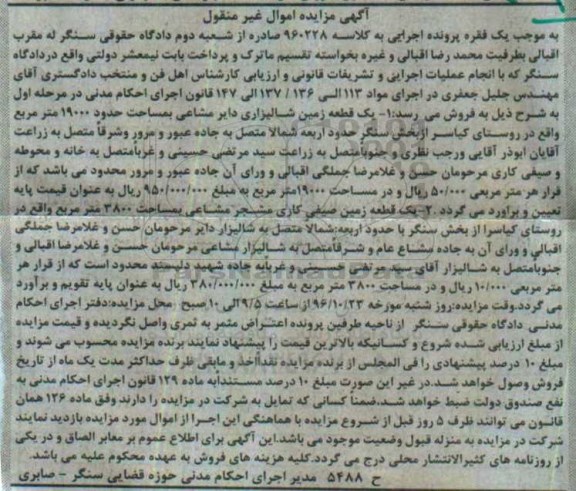 آگهی مزایده اموال غیر منقول
به موجب یک فقره پرونده اجرایی به کلاسه ۹۶۰۲۲۸ صادره از شعبه دوم دادگاه حقوقی سنگر له مقرب
اقبالی بطرفیت محمد رضا اقبالی و غیره بخواسته تقسیم ماترک و پرداخت بابت نیمعشر دولتی واقع دردادگاه
سنگر که با انجام عملیات اجرایی و تشریفات قانونی و ارزیابی کارشناس اهل فن و منتخب دادگستری آقای
مهندس جلیل جعفری در اجرای مواد ۱۱۳ الی ۱۳۶ / ۱۳۷ الی ۱۴۷ قانون اجرای احکام مدنی در مرحله اول
به شرح ذیل به فروش می رسد:۱- یک قطعه زمین شالیزاری دایر مشاعی بمساحت حدود ۱۹۰۰۰ متر مربع
واقع در روستای کیاسر ازبخش سنگر حدود اربعه شمالا متصل به جاده عبور و مرور وشرقاً متصل به زراعت
آقایان ابوذر آقایی ورجب نظری و جنوباًمتصل به زراعت سید مرتضی حسینی و غرباًمتصل به خانه و محوطه
و صیفی کاری مرحومان حسن و غلامرضا جملگی اقبالی و ورای آن جاده عبور و مرور محدود می باشد که از
قرار هر متر مربعی ۵۰/۰۰۰ ریال و در مساحت ۱۹۰۰۰متر مربع به مبلغ ۹۵۰/۰۰۰/۰۰۰ ریال به عنوان قیمت پایه
تعیین و برآورد می گردد .۲- یک قطعه زمین صیفی کاری مشجر مشاعی بمساحت ۳۸۰۰ متر مربع واقع در
روستای کیاسرا از بخش سنگر با حدود اربعه:شمالا متصل به شالیزار دایر مرحومان حسن و غلامرضا جملگی
اقبالی و ورای آن به جاده مشاع عام و شرقاًمتصل به شالیزار مشاعی مرحومان حسن و غلامرضا اقبالی و
جنوباًمتصل به شالیزار آقای سید مرتضی حسینی وغربابه جاده شهید دلپسند محدود است که از قرار هر
متر مربعی ۱۰۰/۰۰۰ ریال و در مساحت ۳۸۰۰ متر مربع به مبلغ ۳۸۰/۰۰۰/۰۰۰ ریال به عنوان پایه تقویم و برآورد
می گردد.وقت مزایده:روز شنبه مورخه ۹۶/۱۰/۲۳ از ساعت ۹/۵ الی ۱۰ صبح محل مزایده:دفتر اجرای احکام
مدنی دادگاه حقوقی سنگر از ناحیه طرفین پرونده اعتراض مثمر به ثمری واصل نگردیده و قیمت مزایده
از مبلغ ارزیابی شده شروع و کسانیکه بالاترین قیمت را پیشنهاد نمایند برنده مزایده محسوب می شوند و
مبلغ ۱۰ درصد پیشنهادی را فی المجلس از برنده مزایده نقداًاخذ و مابقی ظرف حداکثر مدت یک ماه از تاریخ
فروش وصول خواهد شد.در غیر این صورت مبلغ ۱۰ درصد مستنداًبه ماده ۱۲۹ قانون اجرای احکام مدنی به
نفع صندوق دولت ضبط خواهد شد.ضمناً کسانی که تمایل به شرکت در مزایده را دارند وفق ماده ۱۲۶ همان
قانون می توانند ظرف ۵ روز قبل از شروع مزایده با هماهنگی این اجرا از اموال مورد مزایده بازدید نمایند
شرکت در مزایده به منزله قبول وضعیت موجود می باشد.این آگهی برای اطلاع عموم بر معابر الصاق و در یکی
از روزنامه های کثیرالانتشار محلی درج می گردد.کلیه هزینه های فروش به عهده محکوم علیه می باشد.
ح ۵۴۸۸ مدیر اجرای احکام مدنی حوزه قضایی سنگر - صابری